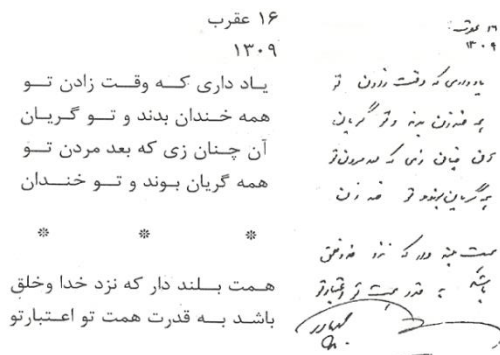 ۱۶ عقرب
۱۳۰۹
یاد داری کـه وقـت زادن تـو
همه خـندان بدند و تـو گـریان
آن چـنان زی که بعد مردن تـو
همه گریان بوند و تـو خـنـدان
* * *
همـت بـلـند دار که نزد خدا وخلق
باشـد بـه قدرت همت تو اعـتبارتو
۱۶ عقرب
۱۳۰۹
یاد داری که وقت زادن تو
همه خندان بدند و تو گریان
آن چنان زی که بعد مردن تو
همه گریان بوند و تو خندان
همت بلند دار که نزد خدا و خلق
باشد به قدر همت تو اعتبار تو